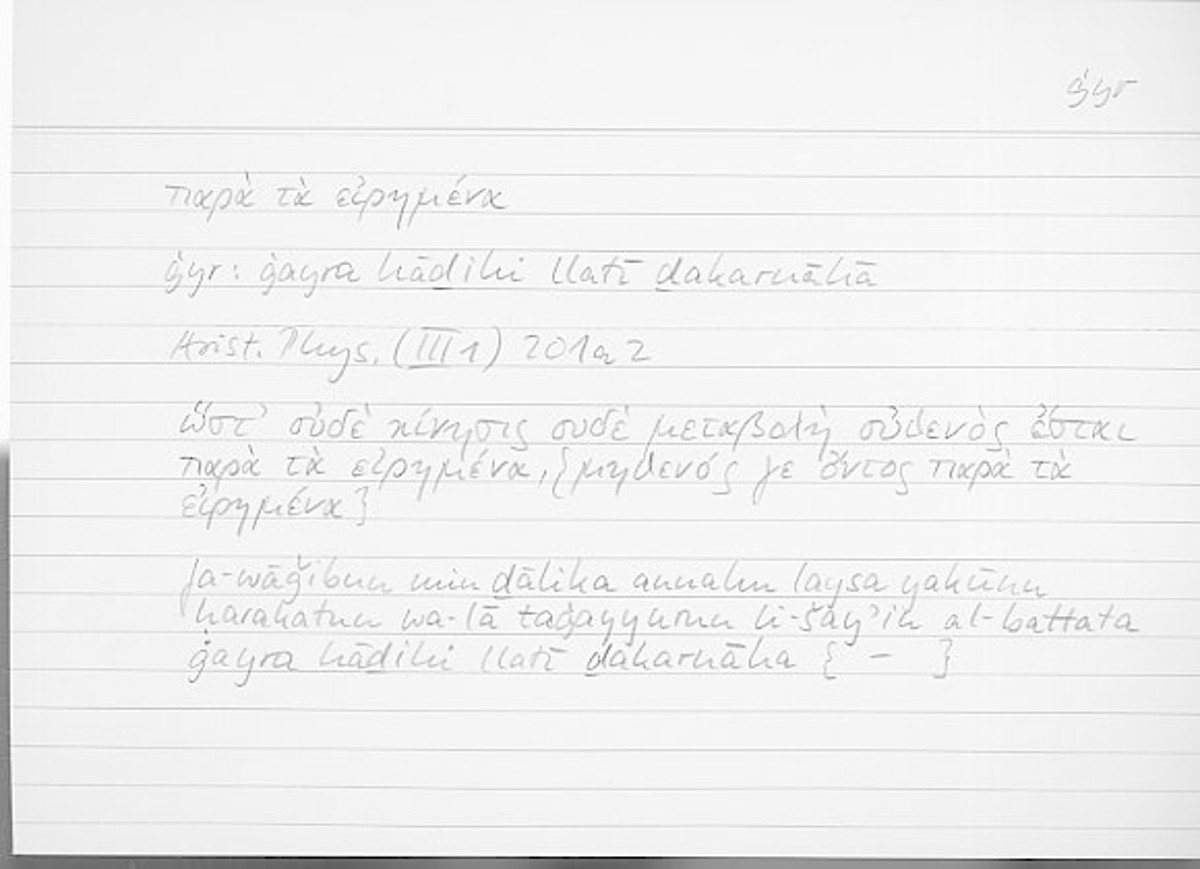 ġyr
παρὰ τὰ εἰρημένα
ġyr: ġayra hāḏihi llatī ḏakarnāhā
Arist. Phys. (III 1) 201a2
ὥστ' οὐδὲ κίνησις οὐδὲ μεταβολὴ οὐθενὸς ἔσται
παρὰ τὰ εἰρημένα, {μηθενός γε ὄντος παρὰ τὰ
εἰρημένα}
fa-wāǧibun min ḏālika annahu laysa yakūnu
ḥarakatun wa-lā taġayyurun li-šay'in al-battata
ġayra hāḏihi llatī ḏakarnāha { – }